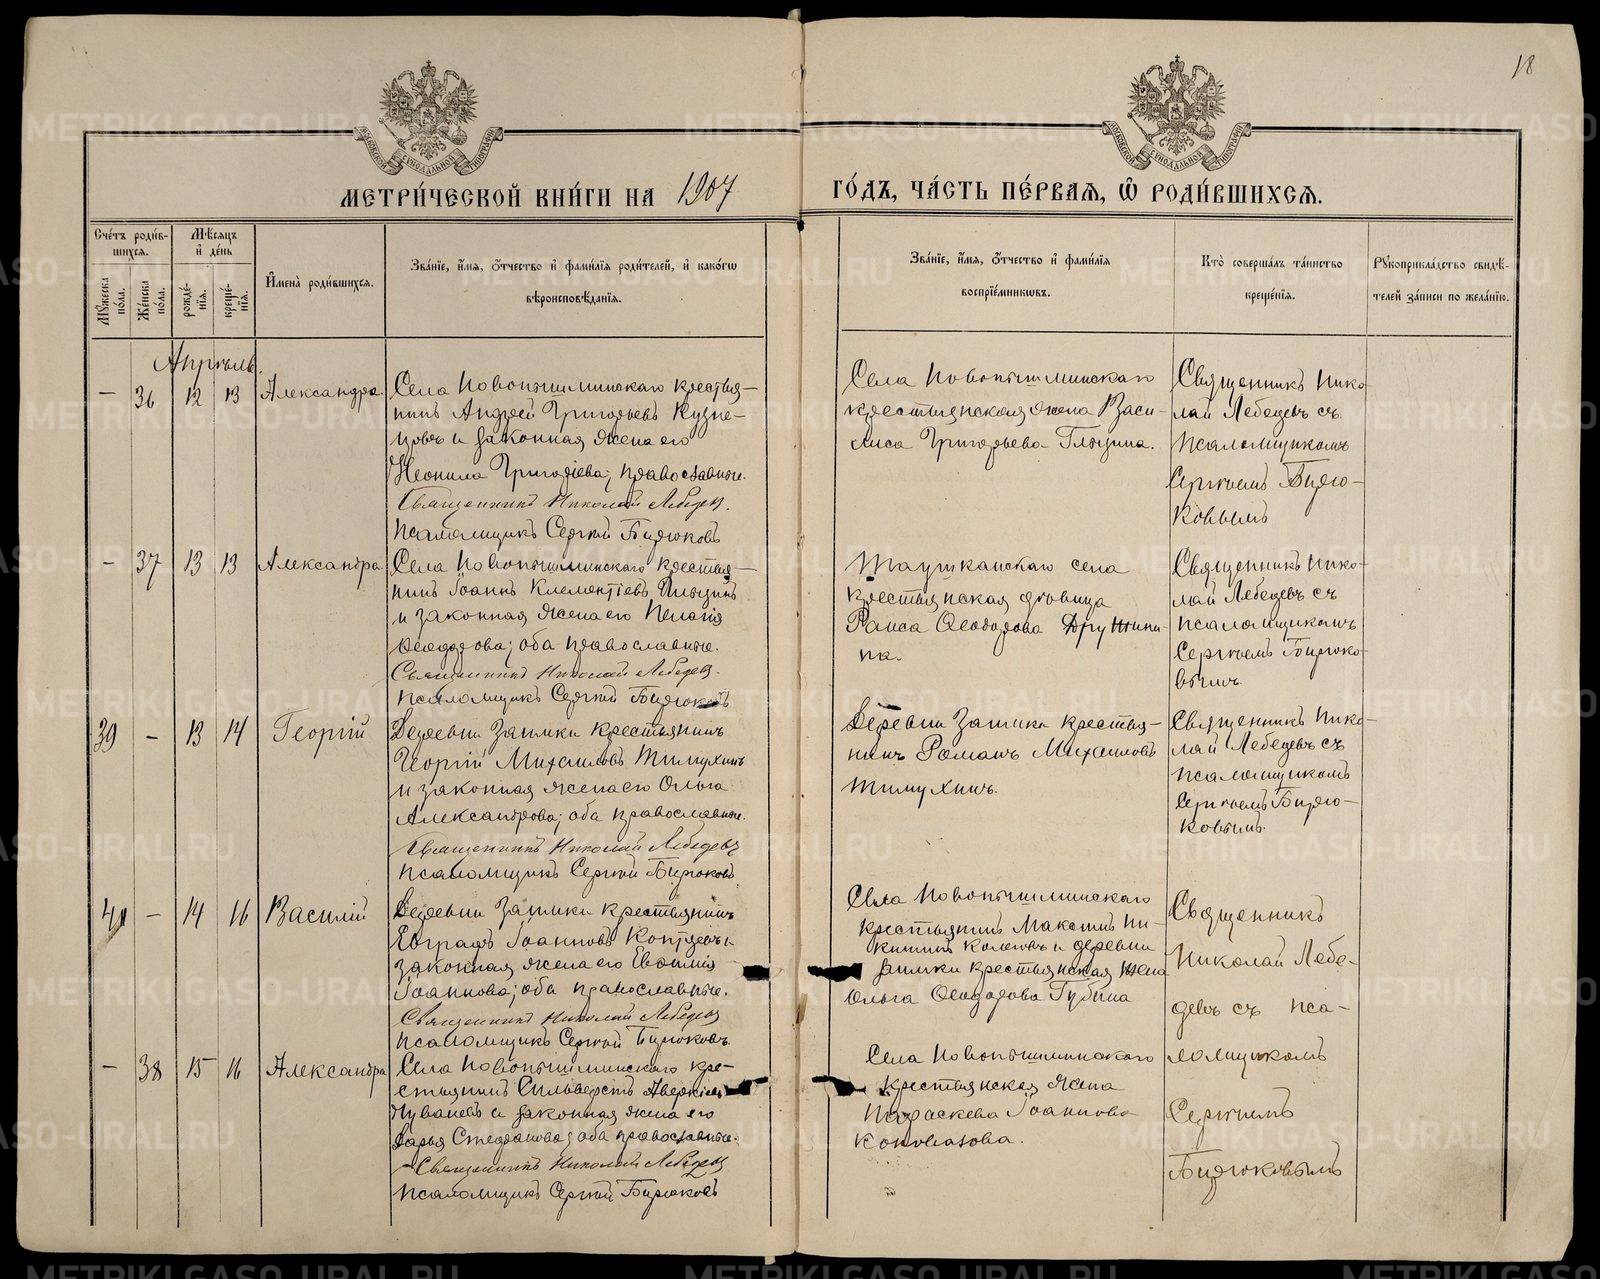 18
МЕТРИ́ЧЕСКОЙ КНИ́ГИ НА 1907 ГО́ДЪ, ЧА́СТЬ ПЕ́РВАЯ, Ѡ РОДИ́ВШИХСѦ.
Сче́тъ роди́в-
шихся.
Мꙋ́жеска по́ла.
Же́нска по́ла.
Мѣ́сяцъ
и де́нь
рожде́-
нія.
креще́-
нія.
Имена̀ роди́вшихся.
Зва́ніе, и́мя, о́тчество и фами́лія роди́телей, и како́гѡ
вѣроисповѣ́данія.
Зва́ніе, и́мя, о́тчество и фами́лія
воспріе́мниковъ.
Кто̀ соверша́лъ та́инство
креще́нія.
Рꙋкоприкла́дство свидѣ́-
телей за́писи по жела́нію.
Апрѣль.
– 36 12 13 Александра.
Села Новопышминскаго крестья-
нинъ Андрей Григорьевъ Кузне-
цовъ и законная жена его
Неонила Григорьева; православные.
Священникъ Николай Лебедев.
Псаломщикъ Сергій Бирюковъ
Села Новопышминскаго
крестьянская жена Васи-
лиса Григорьева
Священникъ Нико-
лай Лебедевъ съ
псаломщикомъ
Сергѣемъ Бирю-
ковымъ
– 37 13 13 Александра
Села Новопышминскаго крестья-
нинъ Іоаннъ Клементіевъ
и законная жена его Пелагія
Ѳеодорова; оба православные.
Священникъ Николай Лебедев.
Псаломщикъ Сергій Бирюковъ
Таушканскаго села
крестьянская дѣвица
Раиса Ѳеодорова Дружини-
на.
Священникъ Нико-
лай Лебедевъ съ
псаломщикомъ
Сергѣемъ Бирюко-
вымъ.
39 – 13 14 Георгій
Деревни Заимки крестьянинъ
Георгій Михаиловъ Тимухинъ
и законная жена его Ольга
Александрова; оба православные.
Священникъ Николай Лебедевъ
Псаломщикъ Сергій Бирюковъ
Деревни Заимки крестья-
нинъ Романъ Михаиловъ
Тимухинъ.
Священникъ Нико-
лай Лебедевъ съ
псаломщикомъ
Сергѣемъ Бирю-
ковымъ.
40 – 14 16 Василій
Деревни Заимки крестьянинъ
Евграфъ Іоанновъ и
законная жена его Евѳимія
Іоаннова; оба православные.
Священникъ Николай Лебедев
Псаломщикъ Сергій Бирюковъ.
Села Новопышминскаго
крестьянинъ Максимъ Ни-
китинъ и деревни
Заимки крестьянская жена
Ольга Ѳеодорова Губина
Священникъ
Николай Лебе-
девъ съ пса-
ломщикомъ
Сергѣемъ
Бирюковымъ
– 38 15 16 Александра
Села Новопышминскаго кре-
стьянинъ Сильверстъ Аверкіевъ
Чуваевъ и законная жена его
Дарья Стефанова; оба православные.
Священникъ Николай Лебедев
Псаломщикъ Сергій Бирюковъ
Села Новопышминскаго
крестьянская жена
Параскева Іоаннова
Коновалова.